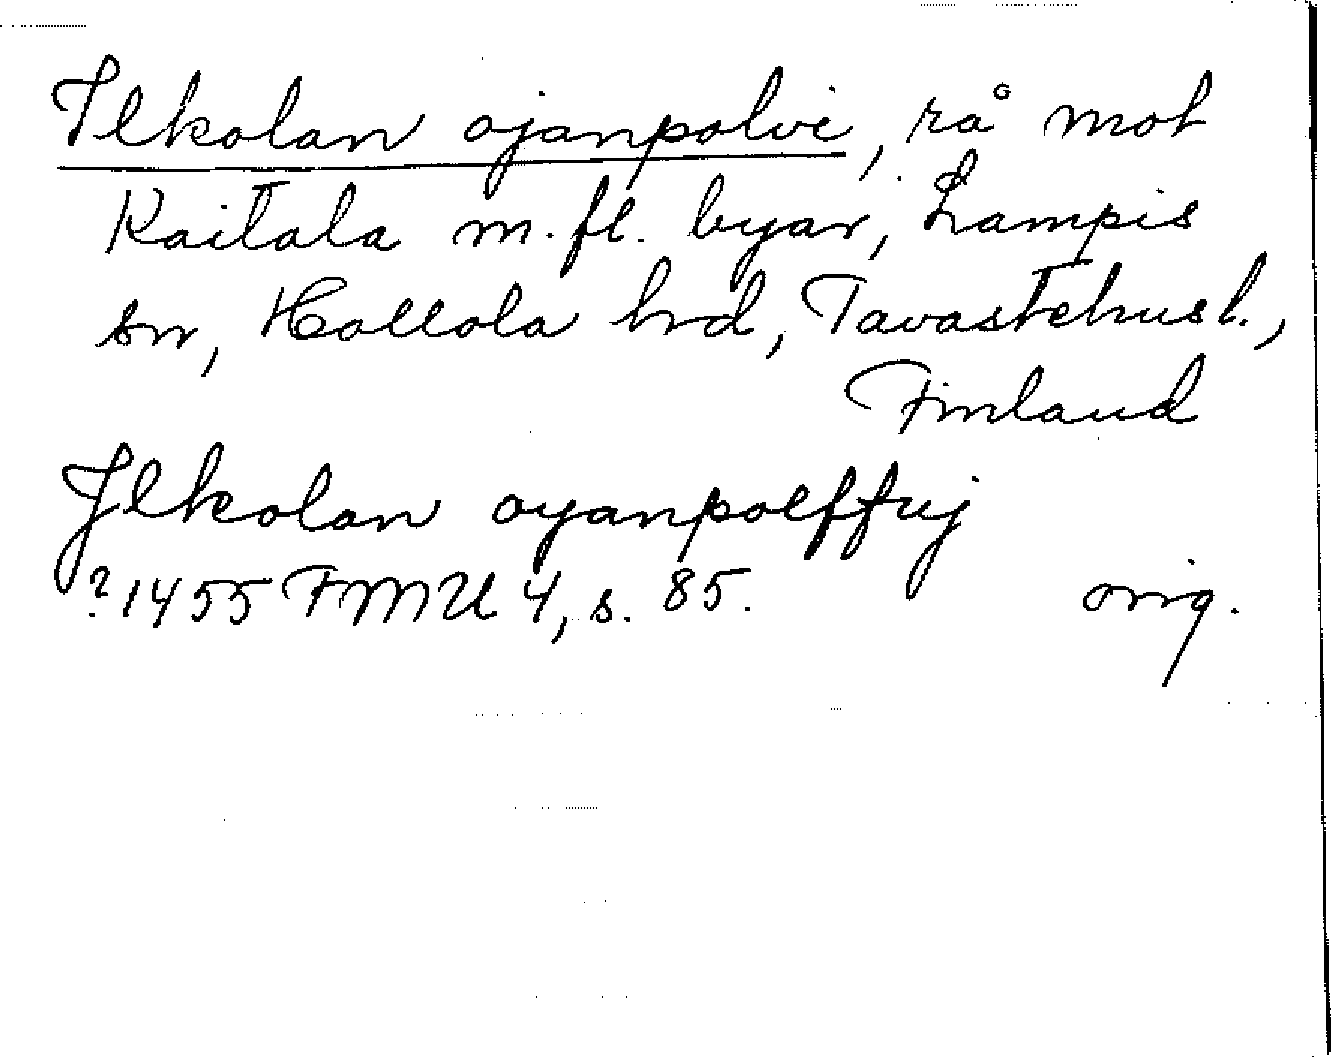 Ilkolan ojanpolvi, rå mot
Kaitala m.fl. byar, Lampis
sn, Hollola hrd, Tavastehus l.,
Finland
Jlkolan oyanpolffuj
?1455 FMU 4, s. 85. orig.